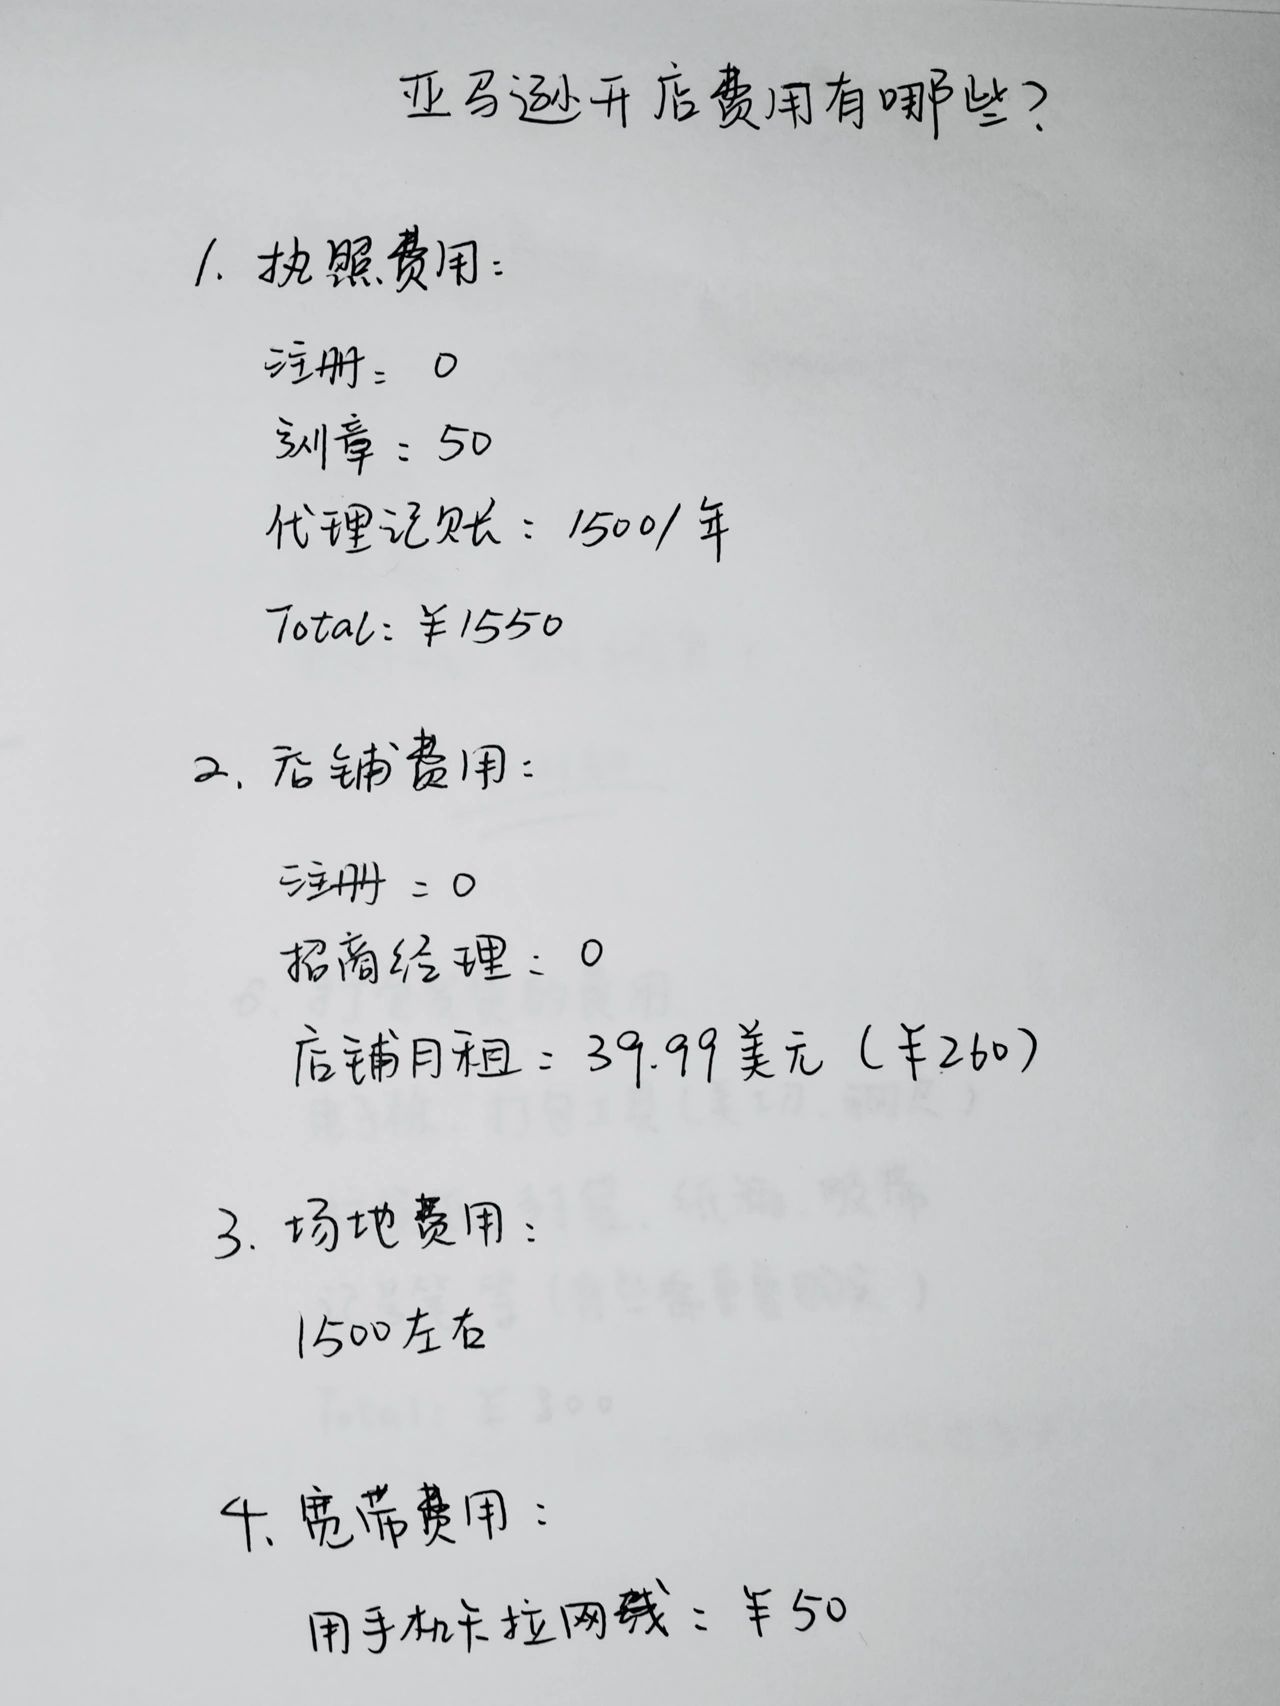 亚马逊开店费用有哪些?
1. 执照费用:
注册: 0
刻章: 50
代理记账: 1500/年
Total: ¥1550
2. 店铺费用:
注册: 0
招商经理: 0
店铺月租: 39.99美元 (¥260)
3. 场地费用:
1500左右
4. 宽带费用:
用手机卡拉网线: ¥50